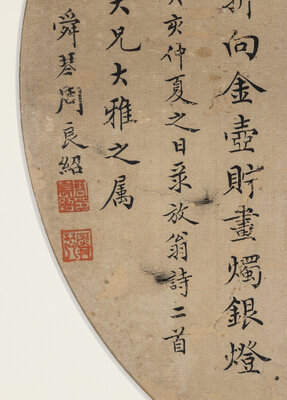 折向金壺貯畫燭銀燈
亥仲夏之日录放翁詩二首
大兄大雅之属
舜琴周良紹